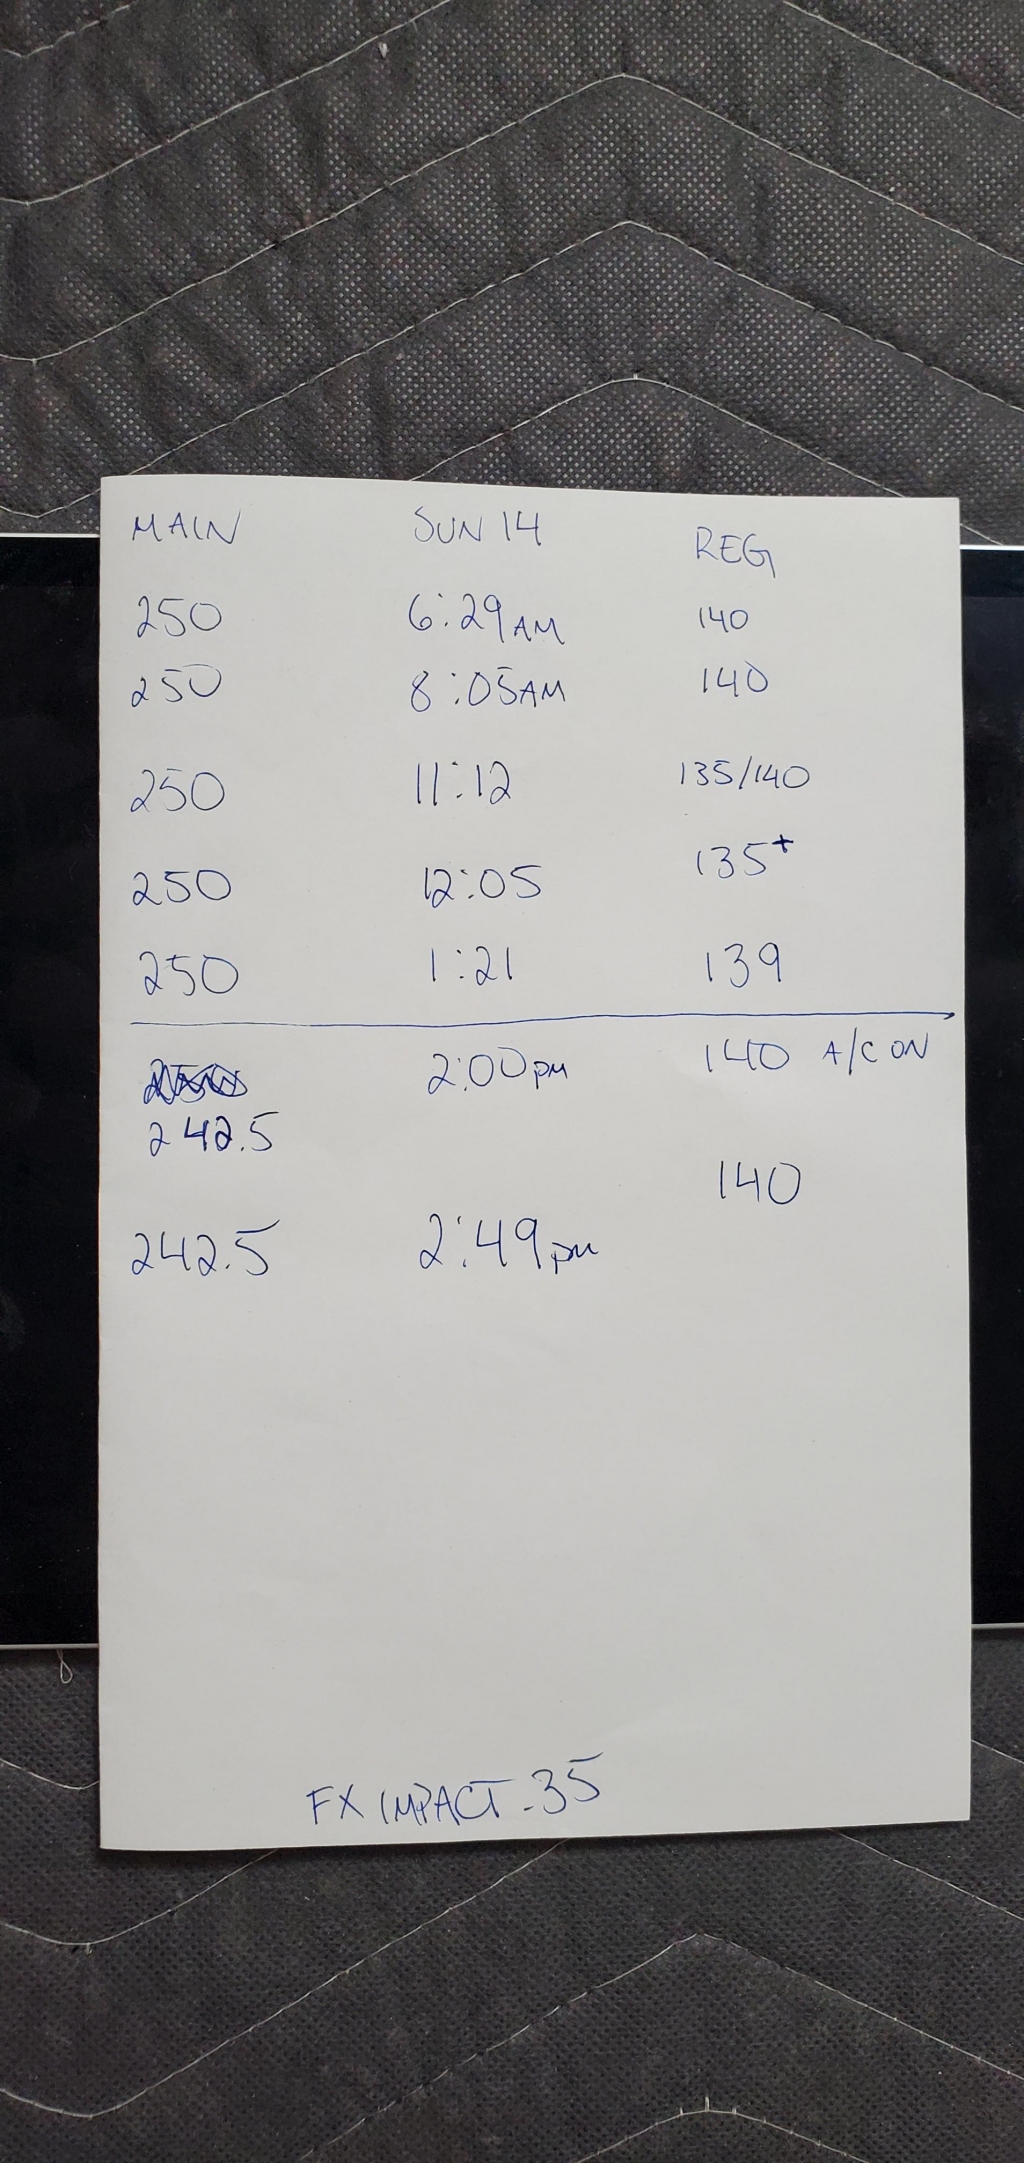 MAIN SUN 14 REG
250 6:29AM 140
250 8:05AM 140
250 11:12 135/140
250 12:05 135+
250 1:21 139
2:00pm 140 A/C ON
242.5
242.5 2:49pm 140
FX IMPACT .35